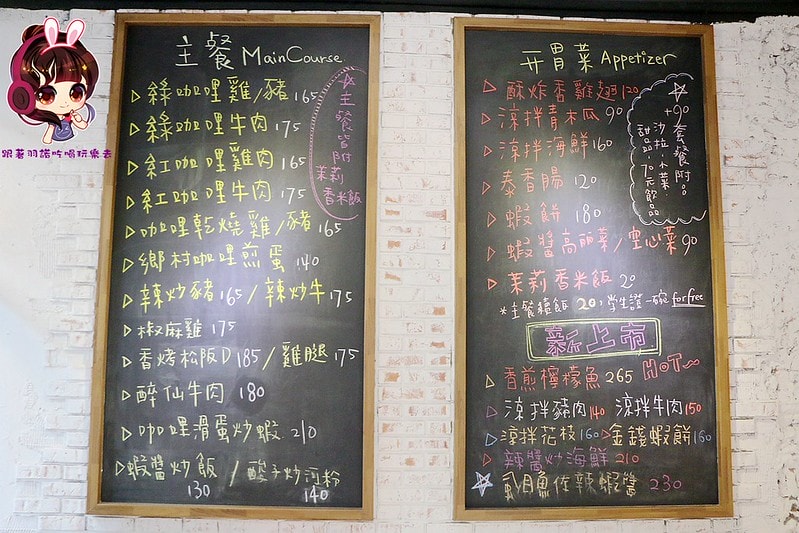 主餐 MainCourse
▷綠咖哩雞/豬 165
▷綠咖哩牛肉 175
▷紅咖哩雞肉 165
▷紅咖哩牛肉 175
▷咖哩乾燒雞/豬 165
▷鄉村咖哩煎蛋 140
▷辣炒豬 165/辣炒牛 175
▷椒麻雞 175
▷香烤松阪D185/雞腿 175
▷醉仙牛肉 180
▷咖哩滑蛋炒蝦 210
▷蝦醬炒飯 / 酸子炒河粉
130 140
☆主餐皆附
茉莉
香米飯
开胃菜 Appetizer
▷酥炸香雞翅120
▷涼拌青木瓜 90
▷涼拌海鮮160
▷泰香腸 120
▷蝦餅 180
▷蝦醬高麗菜/空心菜90
▷茉莉香米飯 20
*主餐續飯 20,學生證一碗 for free
☆
+90 套餐附:
沙拉,小菜
甜品,70元飲品
新上市
▷香煎檸檬魚 265 HOT
▷涼拌豬肉140 涼拌牛肉150
▷涼拌花枝160▷金錢蝦餅160
▷辣醬炒海鮮 210
☆魛魚佐辣蝦醬 230
跟著羽諾吃喝玩樂去